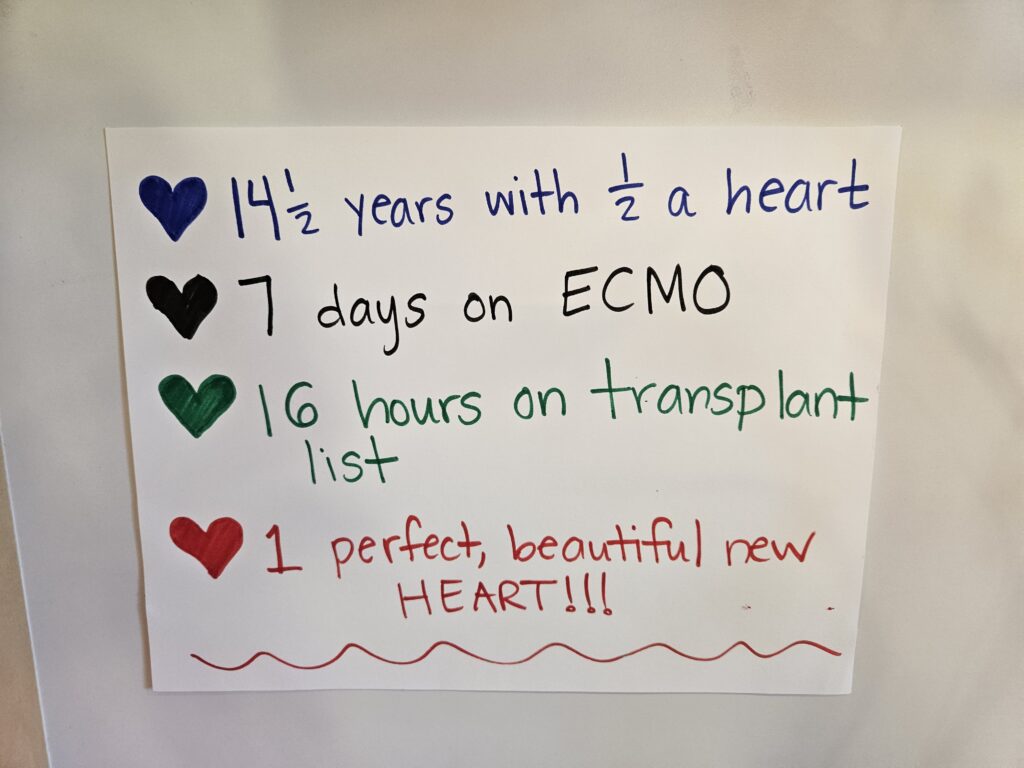 14 1/2 years with 1/2 a heart
7 days on ECMO
16 hours on transplant
list
1 perfect, beautiful new
HEART!!!